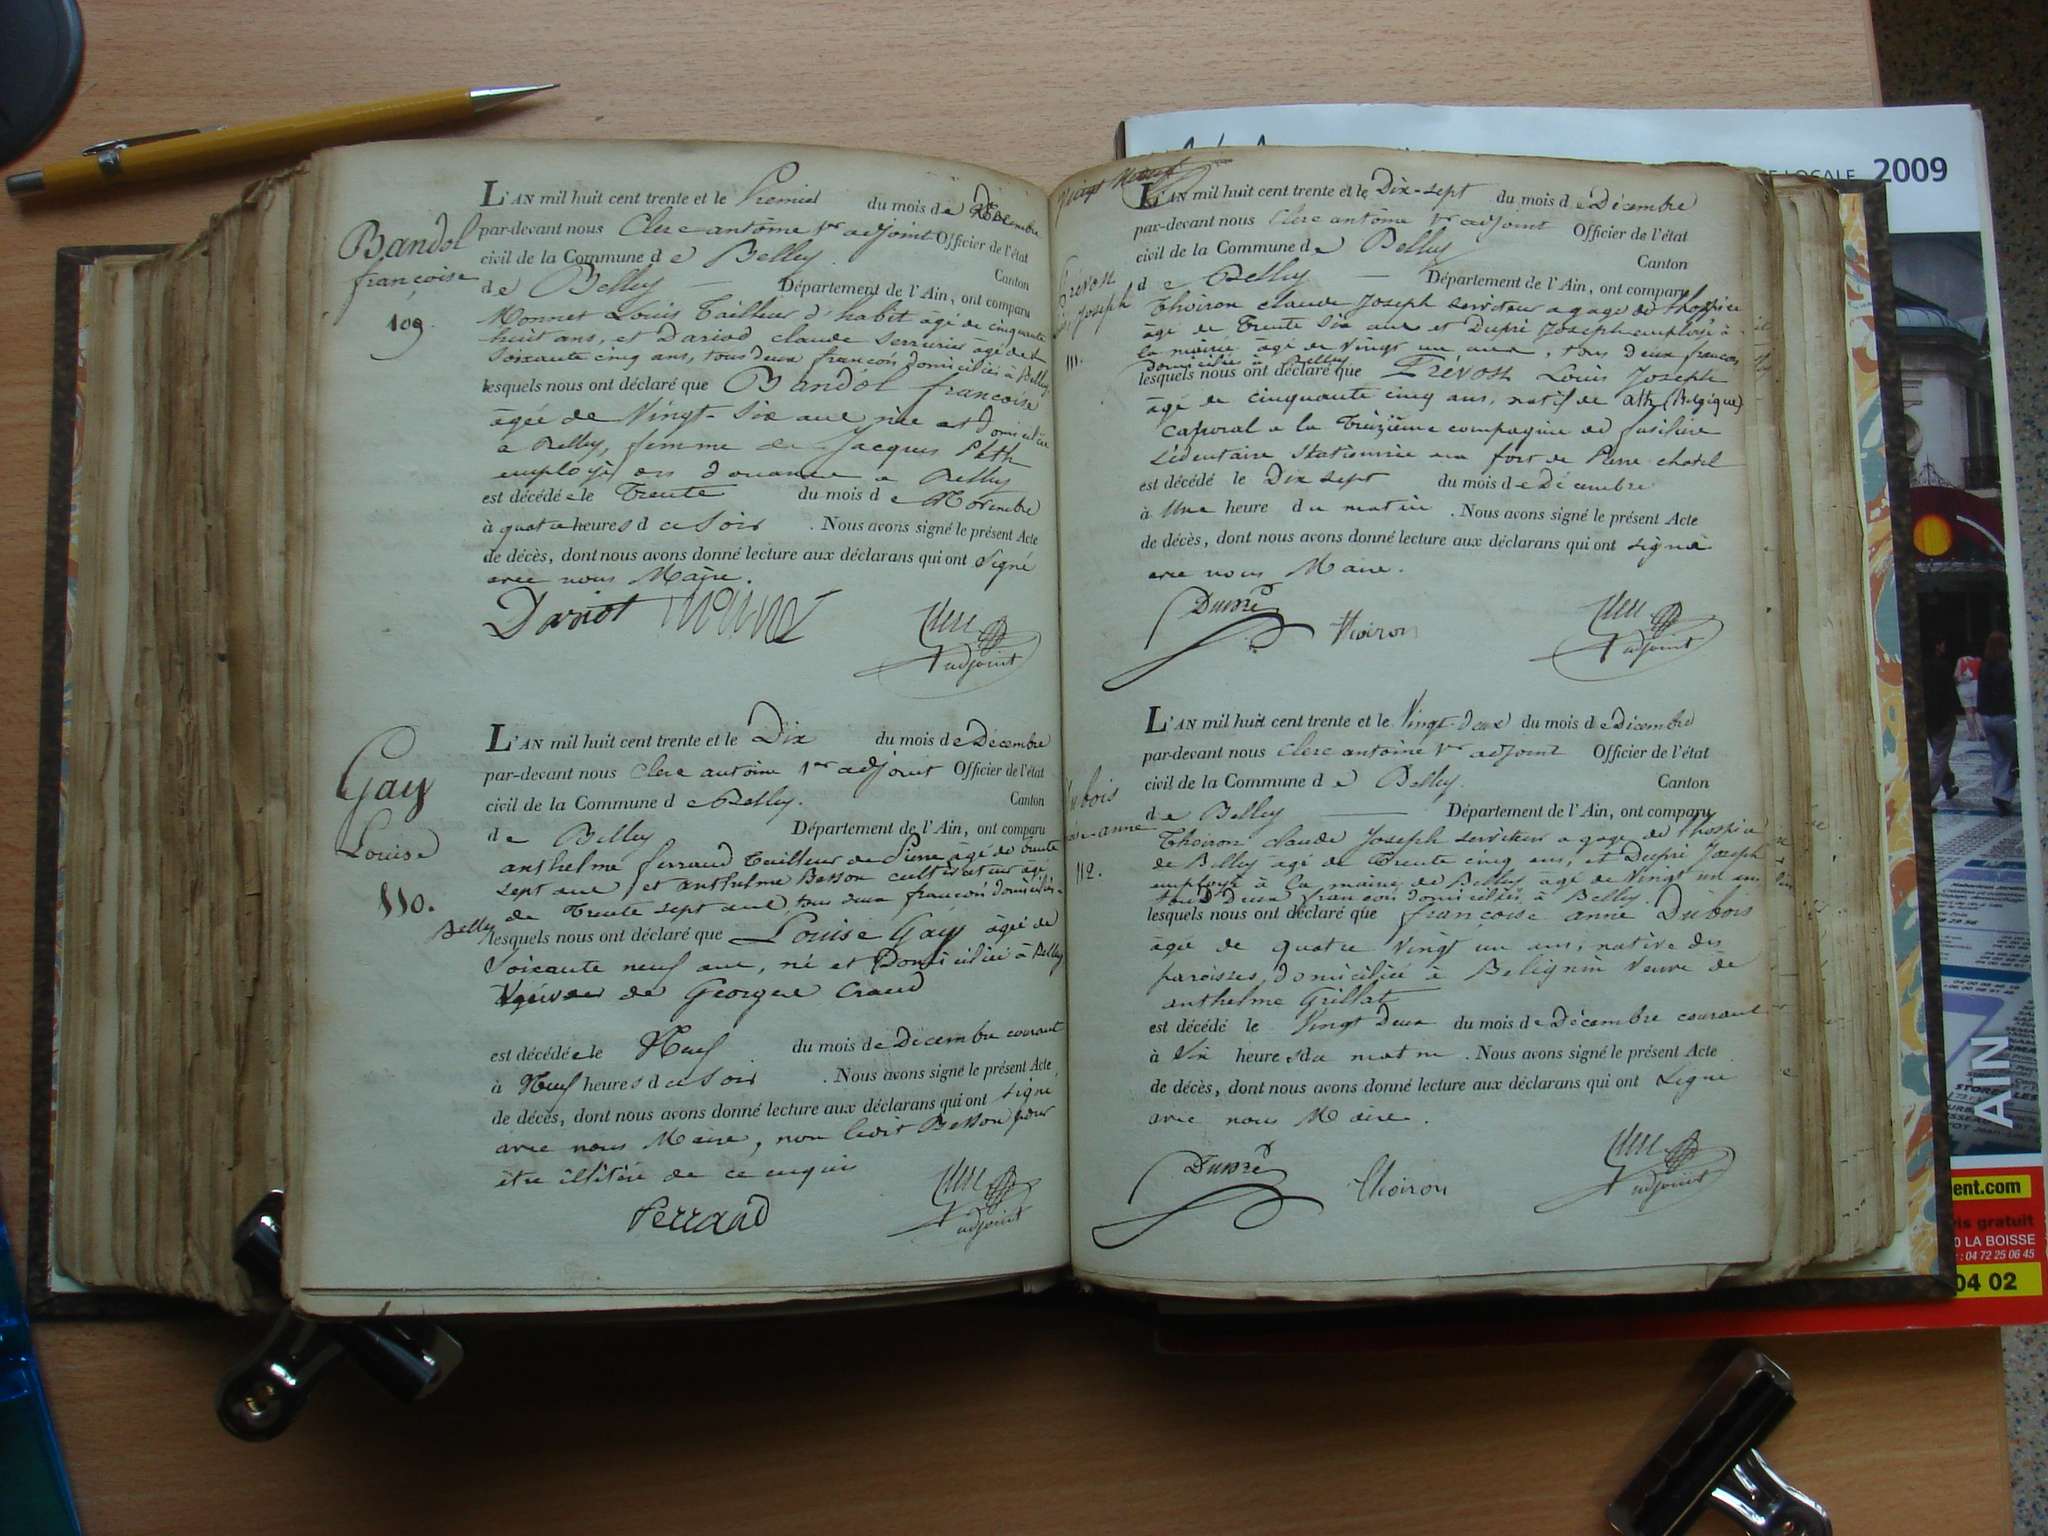 Bandol
françoise
109.
L'AN mil huit cent trente et le Premier du mois de Décembre
par-devant nous Clerc antoine 1er adjoint Officier de l'état
civil de la Commune de Belley Canton
de Belley — Département de l'Ain, ont comparu
Monnet Louis Tailleur d'habit âgé de cinquante
huit ans, et Dariod claude Serrurier âgé de
soixante cinq ans, tous deux françois domiciliés à Belley
lesquels nous ont déclaré que Bandol françoise
âgée de Vingt-Six ans née et domiciliée
a Belley, femme de Jacques
employé des douanes a Belley
est décédée le Trente du mois de Novembre
à quatre heures du Soir . Nous avons signé le présent Acte
de décès, dont nous avons donné lecture aux déclarans qui ont Signé
avec nous Maire.
Dariot
Clerc
adjoint
Gay
Louise
110.
L'AN mil huit cent trente et le Dix du mois de Décembre
par-devant nous Clerc antoine 1er adjoint Officier de l'état
civil de la Commune de Belley. Canton
de Belley Département de l'Ain, ont comparu
anthelme ferrand Tailleur de Pierre âgé de trente
sept ans et anthelme Besson cultivateur âgé
de Trente sept ans tous deux françois domiciliés à
Belley lesquels nous ont déclaré que Louise Gay âgée de
Soixante neuf ans, né et Domiciliée à Belley
de George Craud
est décédée le Neuf du mois de Décembre courant
à Neuf heures du Soir . Nous avons signé le présent Acte
de décès, dont nous avons donné lecture aux déclarans qui ont signé
avec nous Maire, non ledit Besson pour
être illitéré de ce enquis
Ferrand
Clerc
adjoint
Vingt Neuf
L'AN mil huit cent trente et le Dix-sept du mois de Décembre
par-devant nous Clerc antoine 1er adjoint Officier de l'état
civil de la Commune de Belley Canton
de Belley — Département de l'Ain, ont comparu
Prévost
Joseph
111.
Thoiron claude Joseph serviteur a gage de l'hospice
âgé de Trente Six ans et Dupré Joseph employé à
la mairie âgé de Vingt un ans, tous deux françois
Domiciliés à Belley
lesquels nous ont déclaré que Prévost Louis Joseph
âgé de cinquante cinq ans, natif de ath (Belgique)
caporal a la Treizième compagnie de fusilier
Sédentaire Stationnée au fort de Pierre chatel
est décédé le Dix sept du mois de Décembre
à Une heure du matin . Nous avons signé le présent Acte
de décès, dont nous avons donné lecture aux déclarans qui ont signé
avec nous Maire.
Dupré
Thoiron
Clerc
adjoint
L'AN mil huit cent trente et le Vingt-deux du mois de Décembre
par-devant nous Clerc antoine 1er adjoint Officier de l'état
civil de la Commune de Belley. Canton
de Belley — Département de l'Ain, ont comparu
Dubois
anne
112.
Thoiron claude Joseph serviteur a gage de l'hospice
de Belley âgé de Trente cinq ans, et Dupré Joseph
employé à la mairie de Belley âgé de Vingt un ans
tous Deux françois domiciliés à Belley.
lesquels nous ont déclaré que françoise anne Dubois
âgée de quatre Vingt un ans, native des
paroisses, domiciliée à Belignin Veuve de
anthelme Grillat
est décédé le Vingt Deux du mois de Décembre courant
à Six heures du matin . Nous avons signé le présent Acte
de décès, dont nous avons donné lecture aux déclarans qui ont Signé
avec nous Maire.
Dupré
Thoiron
Clerc
adjoint
LOCALE 2009
AIN
ent.com
gratuit
LA BOISSE
: 04 72 25 06 45
04 02